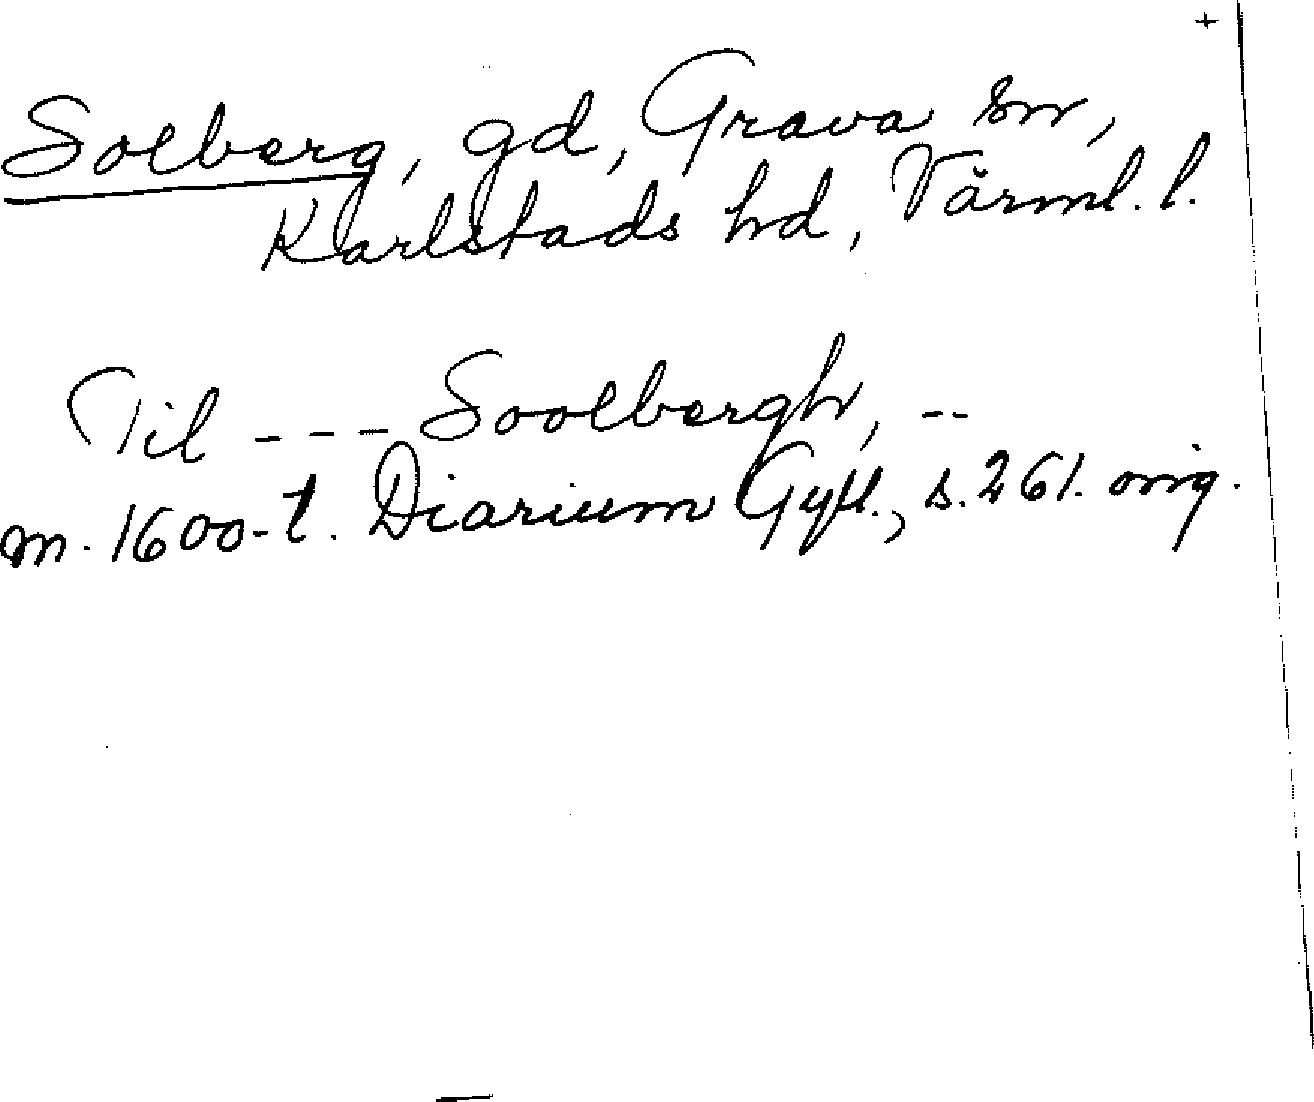 +
Solberg, gd, Grava sn,
Karlstads hd, Värml. l.
Til --- Soolbergh, --
m. 1600-t. Diarium Gyll., s. 261. orig.